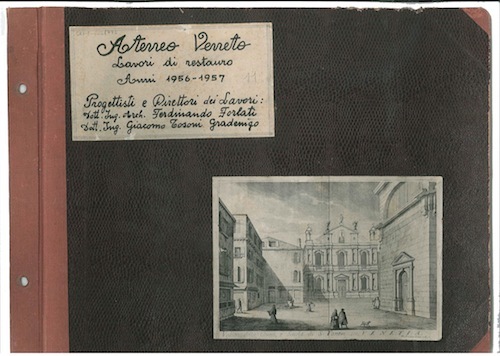 Ateneo Veneto
Lavori di restauro
Anni 1956-1957
11
Progettisti e Direttori dei Lavori:
Dott. Ing. Arch. Ferdinando Forlati
Dott. Ing. Giacomo Tosoni Gradenigo
VENETIA